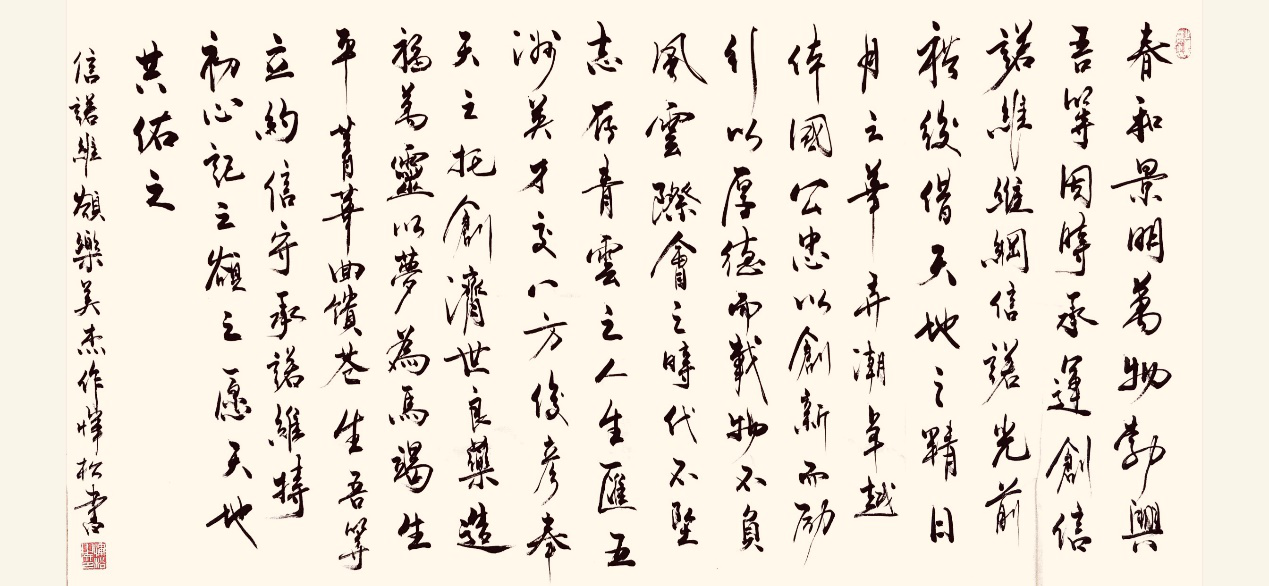 春和景明萬物勃興
吾等因時承運創信
諾維維綱信諾光前
裕後借天地之精日
月之華弄潮卓越
体國公忠以創新而勵
行以厚德而載物不負
風雲際會之時代不墜
志存青雲之人生匯五
洲英才交八方俊彥奉
天之托創濟世良藥造
福萬靈以夢為馬竭生
平菁華回饋苍生吾等
立約信守承諾維持
初心記之巔之愿天地
共佑之
信諾維巔樂美杰作惲松書